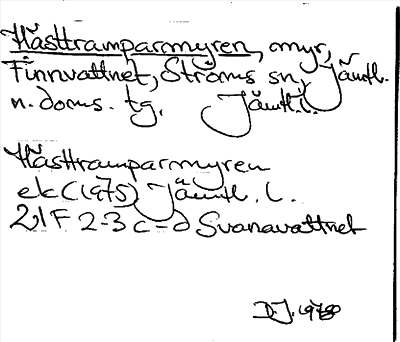 Hästtramparmyren, myr,
Finnvattnet, Ströms sn, Jämtl.
n. doms. tg. Jämtl.l.
Hästtramparmyren
ek (1975) Jämtl. l.
21F 2-3 c-d Svanavattnet
D.J. 1980